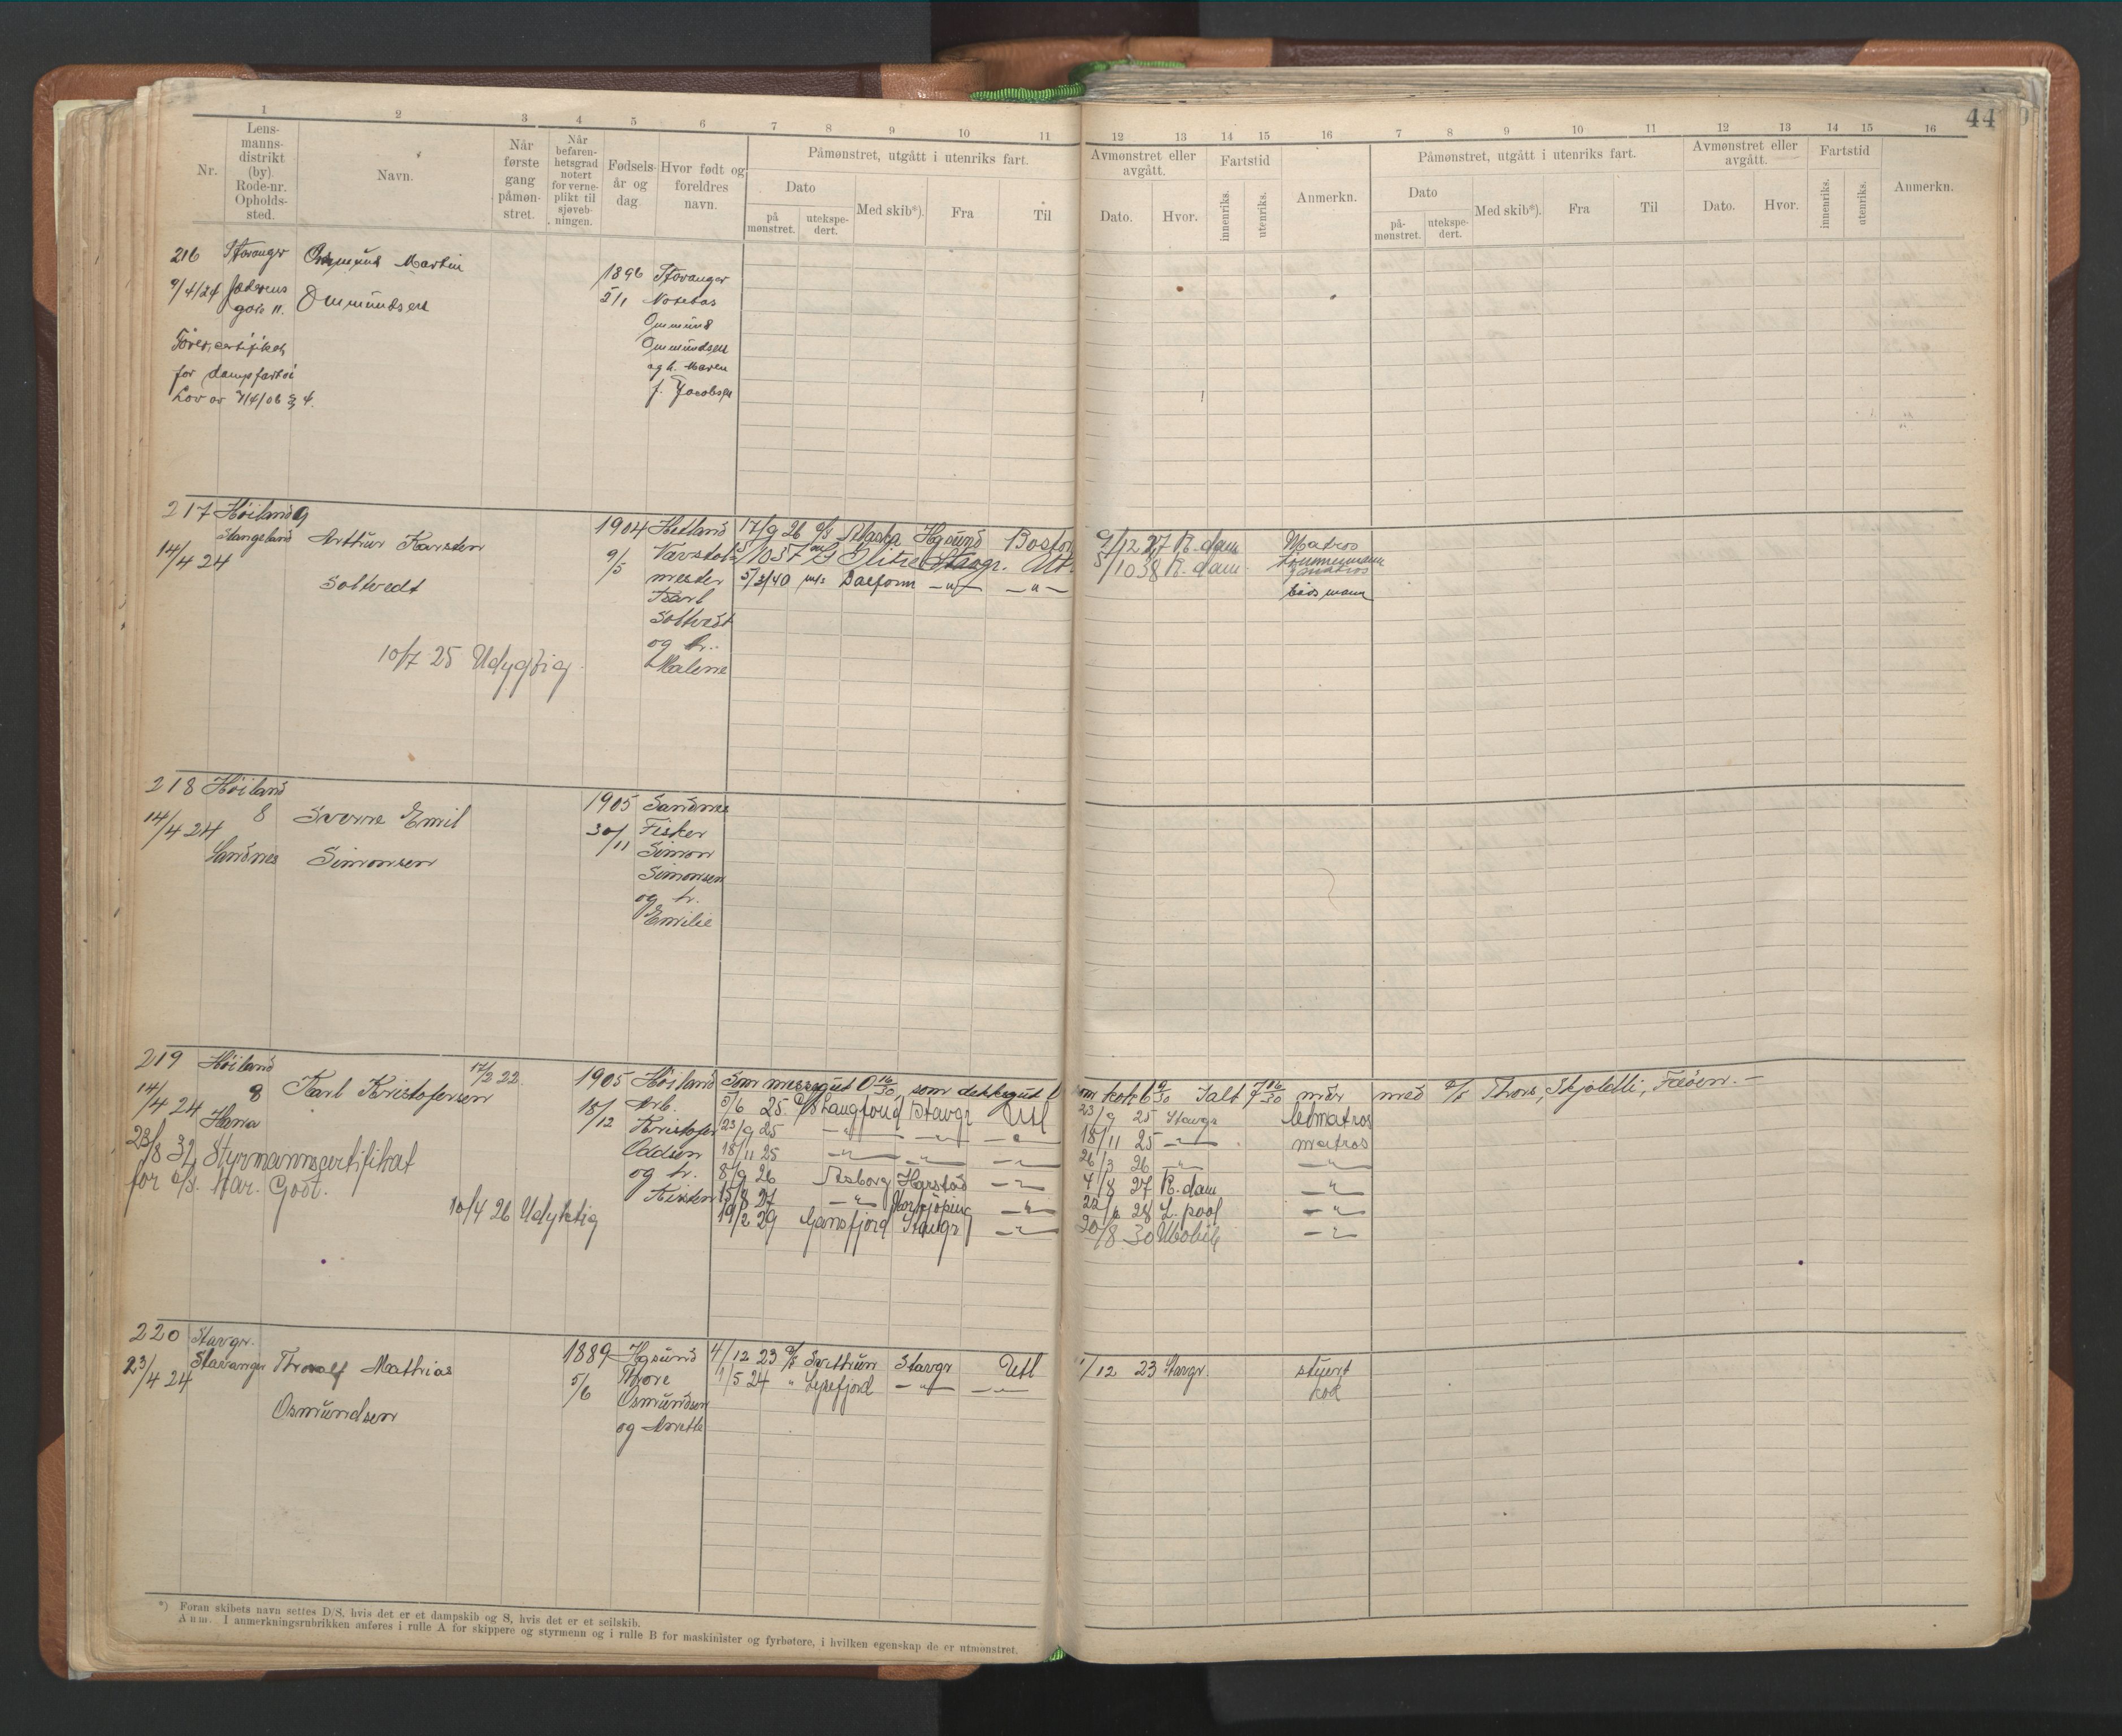 44
1 2 3 4 5 6 7 8 9 10 11 12 13 14 15 16 7 8 9 10 11 12 13 14 15 16
Nr.
Lens-
manns-
distrikt
(by).
Rode-nr.
Opholds-
sted.
Navn.
Når
første
gang
påmøn-
stret.
Når
befaren-
hetsgrad
notert
for verne-
plikt til
sjøveb-
ningen.
Fødsels-
år og
dag.
Hvor født og
foreldres
navn.
Påmønstret, utgått i utenriks fart.
Dato
på
mønstret.
utekspe-
dert.
Med skib*).
Fra
Til
Avmønstret eller
avgått.
Dato.
Hvor.
Fartstid
innenriks.
utenriks.
Anmerkn.
Påmønstret, utgått i utenriks fart.
Dato
på-
mønstret.
utekspe-
dert.
Med skib*).
Fra
Til
Avmønstret eller
avgått.
Dato.
Hvor.
Fartstid
innenriks.
utenriks.
Anmerkn.
216 Stavanger Ommund Martin
Ommundsen
1896 Stavanger
Ommund
Ommundsen
og h. Maren
f. Jacobsen
for dampfartøi
Lov av
217 Høiland 9
Stangeland Arthur Karsten
14/4 24
Soltvedt
10/7 25 Udygtig
1904 Hetland
9/5
mester
Karl
Soltvedt
og h.
Malene
17/9 26 Hgsund Boston
9/12 27 R.dam Matros
Stavgr. Utl.
5/10 38 R.dam Tømmermann
matros
5/2/40 m/s Dalfonn -"- -"-
båsmann
218 Høiland
8 Sverre Emil
14/4 24
Sandnes Simonsen
1905 Sandnes
30/11 Fisker
Simon
Simonsen
og h.
Emilie
219 Høiland 17/2 22
8 Karl Kristofersen
14/4 24
Hana
23/8 32 Styrmannscertifikat
for d/s. Har. Godt.
10/4 26 Udyktig
1905 Høiland
15/12 Arb.
Kristofer
Oddsen
og h.
Kirsten
Som messegut 0 16/30, som dekksgut
som kok 6 Ialt 7 16/30 mdr med d/s Thors, Skjoldli, Feøen.-
5/6 25 Langfond Stavgr Utl 23/9 25 Stavgr letmatros
23/9 25 -"- -"- -"- 18/11 25 -"- matros
18/11 25 -"- -"- -"- 26/3 26 -"- -"-
8/9 26 Asborg Harstad -"- 4/8 27 R.dam -"-
15/8 27 -"- Norkjöping -"- 22/ 28 L.pool -"-
19/2 29 Gansfjord Stavgr -"- 20/8 30 Mobile -"-
220 Stavgr.
Stavanger Thoralf Mathias
23/4 24
Osmundsen
1889 Hgsund
5/6 Thore
Osmundsen
og Anette
4/12 23 d/s Svithun Stavgr Utl
/12 23 Stavgr. stuert
1/5 24 " Lysefjord -"- -"-
kok
*) Foran skibets navn settes D/S, hvis det er et dampskib og S, hvis det er et seilskib.
Anm. I anmerkningsrubrikken anføres i rulle A for skippere og styrmenn og i rulle B for maskinister og fyrbøtere, i hvilken egenskap de er utmønstret.